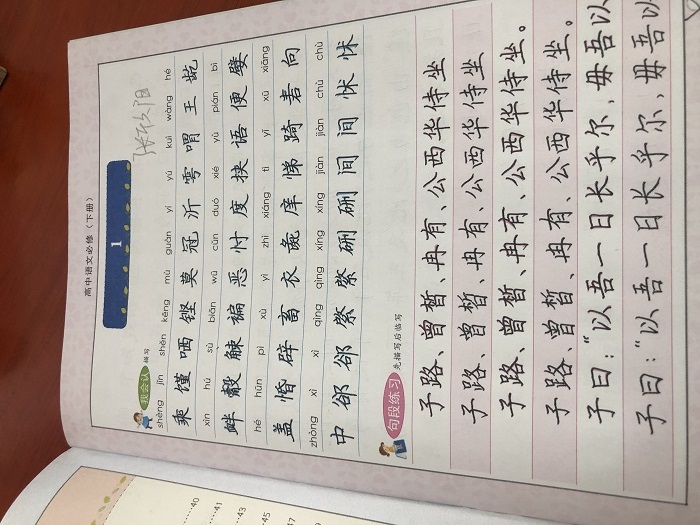 高中语文必修（下册）
1
我会认 描写
shèng jǐn shěn kēng mù guàn yí yú kuì wàng hé
乘 馑 哂 铿 莫 冠 沂 雩 喟 王 龁
xìn hú sù biǎn wū cǔn duó xié yù pián bì
衅 觳 觫 褊 恶 忖 度 挟 语 便 嬖
hé hūn pì xù yì zhì xiáng tì yǐ xū xiǎng
盖 惛 辟 畜 衣 彘 庠 悌 踦 砉 向
zhòng xì xì qìng qìng xíng xíng jiàn jiàn chù chù
中 郤 郤 綮 綮 硎 硎 间 间 怵 怵
句段练习 先描写后临写
子路、曾皙、冉有、公西华侍坐
子路、曾皙、冉有、公西华侍坐
子路、曾皙、冉有、公西华侍坐。
子路、曾皙、冉有、公西华侍坐。
子曰：“以吾一日长乎尔，毋吾以
子曰：“以吾一日长乎尔，毋吾以
……40
……41
…43
…45
47